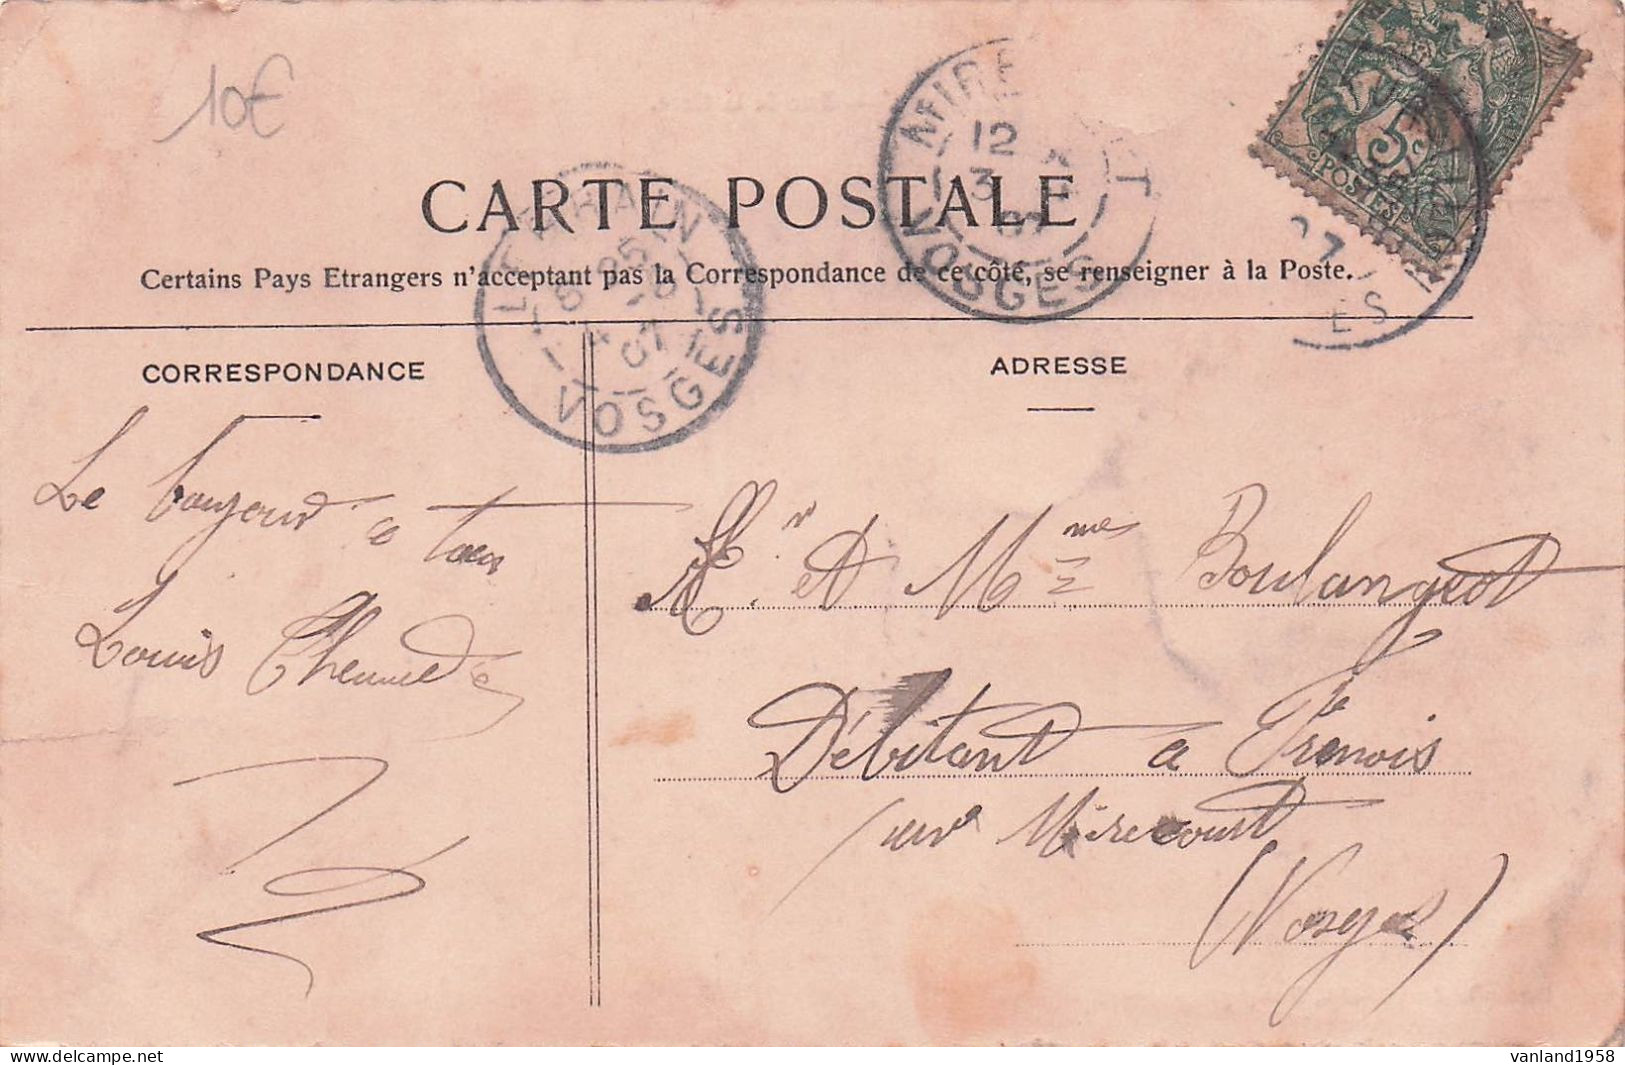 10€
CARTE POSTALE
Certains Pays Etrangers n'acceptant pas la Correspondance de ce côté, se renseigner à la Poste.
VOSGES
07
MIRE
12
3
07
VOSGES
POSTES
5c
CORRESPONDANCE
ADRESSE
Le bonjour a tous
Louis
Mr et Mmes Boulangeot
Débitant a Frenois
sur Mirecourt
(Vosges)
vanland1958